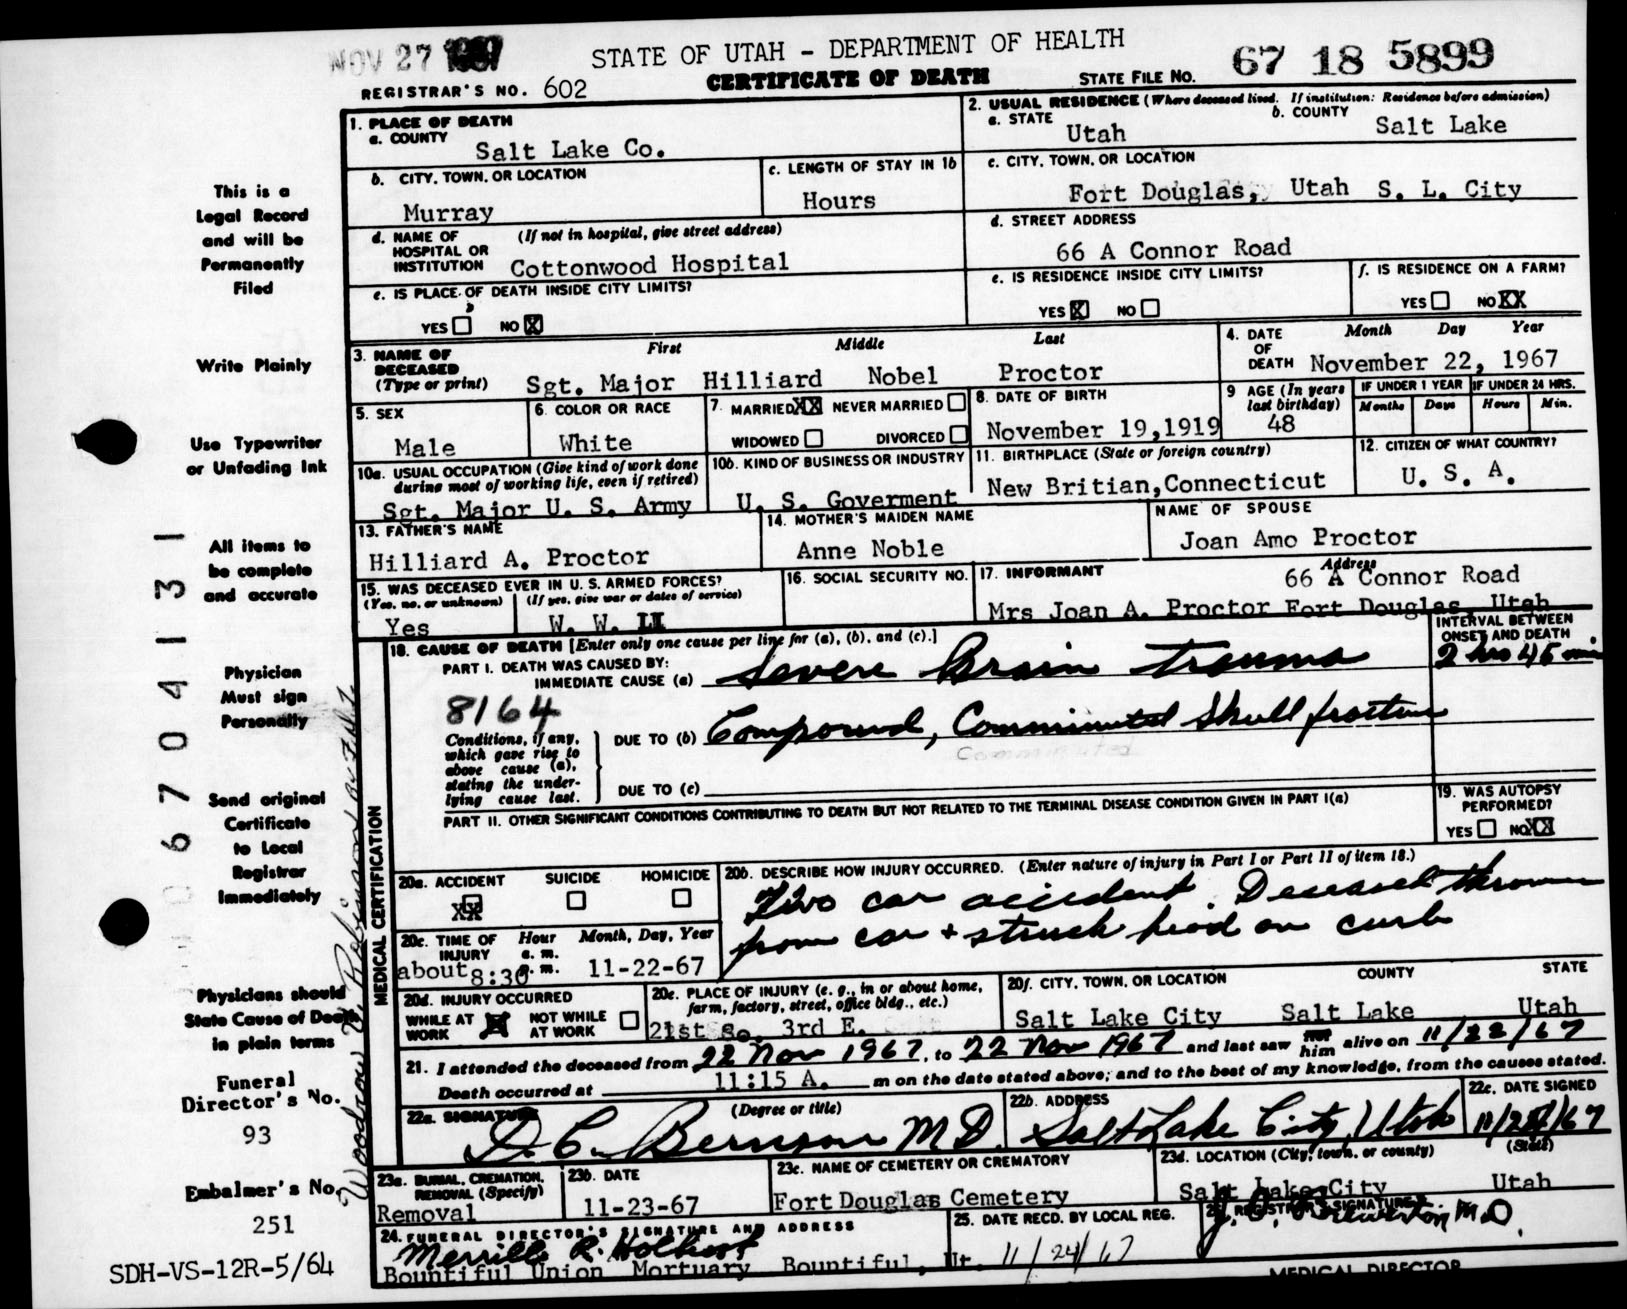 NOV 27 1967
STATE OF UTAH - DEPARTMENT OF HEALTH
CERTIFICATE OF DEATH
REGISTRAR'S NO. 602
STATE FILE NO. 67 18 5899
1. PLACE OF DEATH
a. COUNTY
Salt Lake Co.
2. USUAL RESIDENCE (Where deceased lived. If institution: Residence before admission)
a. STATE
Utah
b. COUNTY
Salt Lake
b. CITY, TOWN, OR LOCATION
Murray
c. LENGTH OF STAY IN 1b
Hours
c. CITY, TOWN, OR LOCATION
Fort Douglas, Utah S. L. City
d. NAME OF HOSPITAL OR INSTITUTION
(If not in hospital, give street address)
Cottonwood Hospital
d. STREET ADDRESS
66 A Connor Road
e. IS PLACE OF DEATH INSIDE CITY LIMITS?
YES NO X
e. IS RESIDENCE INSIDE CITY LIMITS?
YES X NO
f. IS RESIDENCE ON A FARM?
YES NO XX
3. NAME OF DECEASED
(Type or print)
First Middle Last
Sgt. Major Hilliard Nobel Proctor
4. DATE OF DEATH
Month Day Year
November 22, 1967
5. SEX
Male
6. COLOR OR RACE
White
7. MARRIED XX NEVER MARRIED
WIDOWED DIVORCED
8. DATE OF BIRTH
November 19,1919
9 AGE (In years last birthday)
48
IF UNDER 1 YEAR
Months Days
IF UNDER 24 HRS.
Hours Min.
10a. USUAL OCCUPATION (Give kind of work done during most of working life, even if retired)
Sgt. Major U. S. Army
10b. KIND OF BUSINESS OR INDUSTRY
U. S. Goverment
11. BIRTHPLACE (State or foreign country)
New Britian,Connecticut
12. CITIZEN OF WHAT COUNTRY?
U. S. A.
13. FATHER'S NAME
Hilliard A. Proctor
14. MOTHER'S MAIDEN NAME
Anne Noble
NAME OF SPOUSE
Joan Amo Proctor
15. WAS DECEASED EVER IN U. S. ARMED FORCES?
(Yes, no, or unknown) (If yes, give war or dates of service)
Yes W. W. II
16. SOCIAL SECURITY NO.
17. INFORMANT
Address
66 A Connor Road
Mrs Joan A. Proctor Fort Douglas, Utah
MEDICAL CERTIFICATION
18. CAUSE OF DEATH [Enter only one cause per line for (a), (b), and (c).]
INTERVAL BETWEEN ONSET AND DEATH
PART I. DEATH WAS CAUSED BY:
IMMEDIATE CAUSE (a) Severe Brain trauma
2 hrs 45 min
8164
Conditions, if any, which gave rise to above cause (a), stating the underlying cause last.
DUE TO (b) Compound, Comminuted Skull fracture
Comminuted
DUE TO (c)
PART II. OTHER SIGNIFICANT CONDITIONS CONTRIBUTING TO DEATH BUT NOT RELATED TO THE TERMINAL DISEASE CONDITION GIVEN IN PART I(a)
19. WAS AUTOPSY PERFORMED?
YES NO XX
20a. ACCIDENT SUICIDE HOMICIDE
XX
20b. DESCRIBE HOW INJURY OCCURRED. (Enter nature of injury in Part I or Part II of item 18.)
Two car accident. Deceased thrown
from car + struck head on curb
20c. TIME OF INJURY
Hour Month, Day, Year
a. m.
p. m.
about 8:30 11-22-67
20d. INJURY OCCURRED
WHILE AT WORK X NOT WHILE AT WORK
20e. PLACE OF INJURY (e. g., in or about home, farm, factory, street, office bldg., etc.)
21st So. 3rd E.
20f. CITY, TOWN, OR LOCATION COUNTY STATE
Salt Lake City Salt Lake Utah
21. I attended the deceased from 22 Nov 1967, to 22 Nov 1967 and last saw him alive on 11/22/67
Death occurred at 11:15 A. m on the date stated above; and to the best of my knowledge, from the causes stated.
22a. SIGNATURE (Degree or title)
D. C. Bernson MD.
22b. ADDRESS
Salt Lake City, Utah
22c. DATE SIGNED
23a. BURIAL, CREMATION, REMOVAL (Specify)
Removal
23b. DATE
11-23-67
23c. NAME OF CEMETERY OR CREMATORY
Fort Douglas Cemetery
23d. LOCATION (City, town, or county) (State)
Salt Lake City Utah
24. FUNERAL DIRECTOR'S SIGNATURE AND ADDRESS
Merrill R. Holbrook
Bountiful Union Mortuary Bountiful, Ut.
25. DATE RECD. BY LOCAL REG.
11/24/67
REGISTRAR'S SIGNATURE
MEDICAL DIRECTOR
This is a
Legal Record
and will be
Permanently
Filed
Write Plainly
Use Typewriter
or Unfading Ink
All items to
be complete
and accurate
Physician
Must sign
Personally
Send original
Certificate
to Local
Registrar
Immediately
Physicians should
State Cause of Death
in plain terms
Funeral
Director's No.
93
Embalmer's No.
251
SDH-VS-12R-5/64
67041131